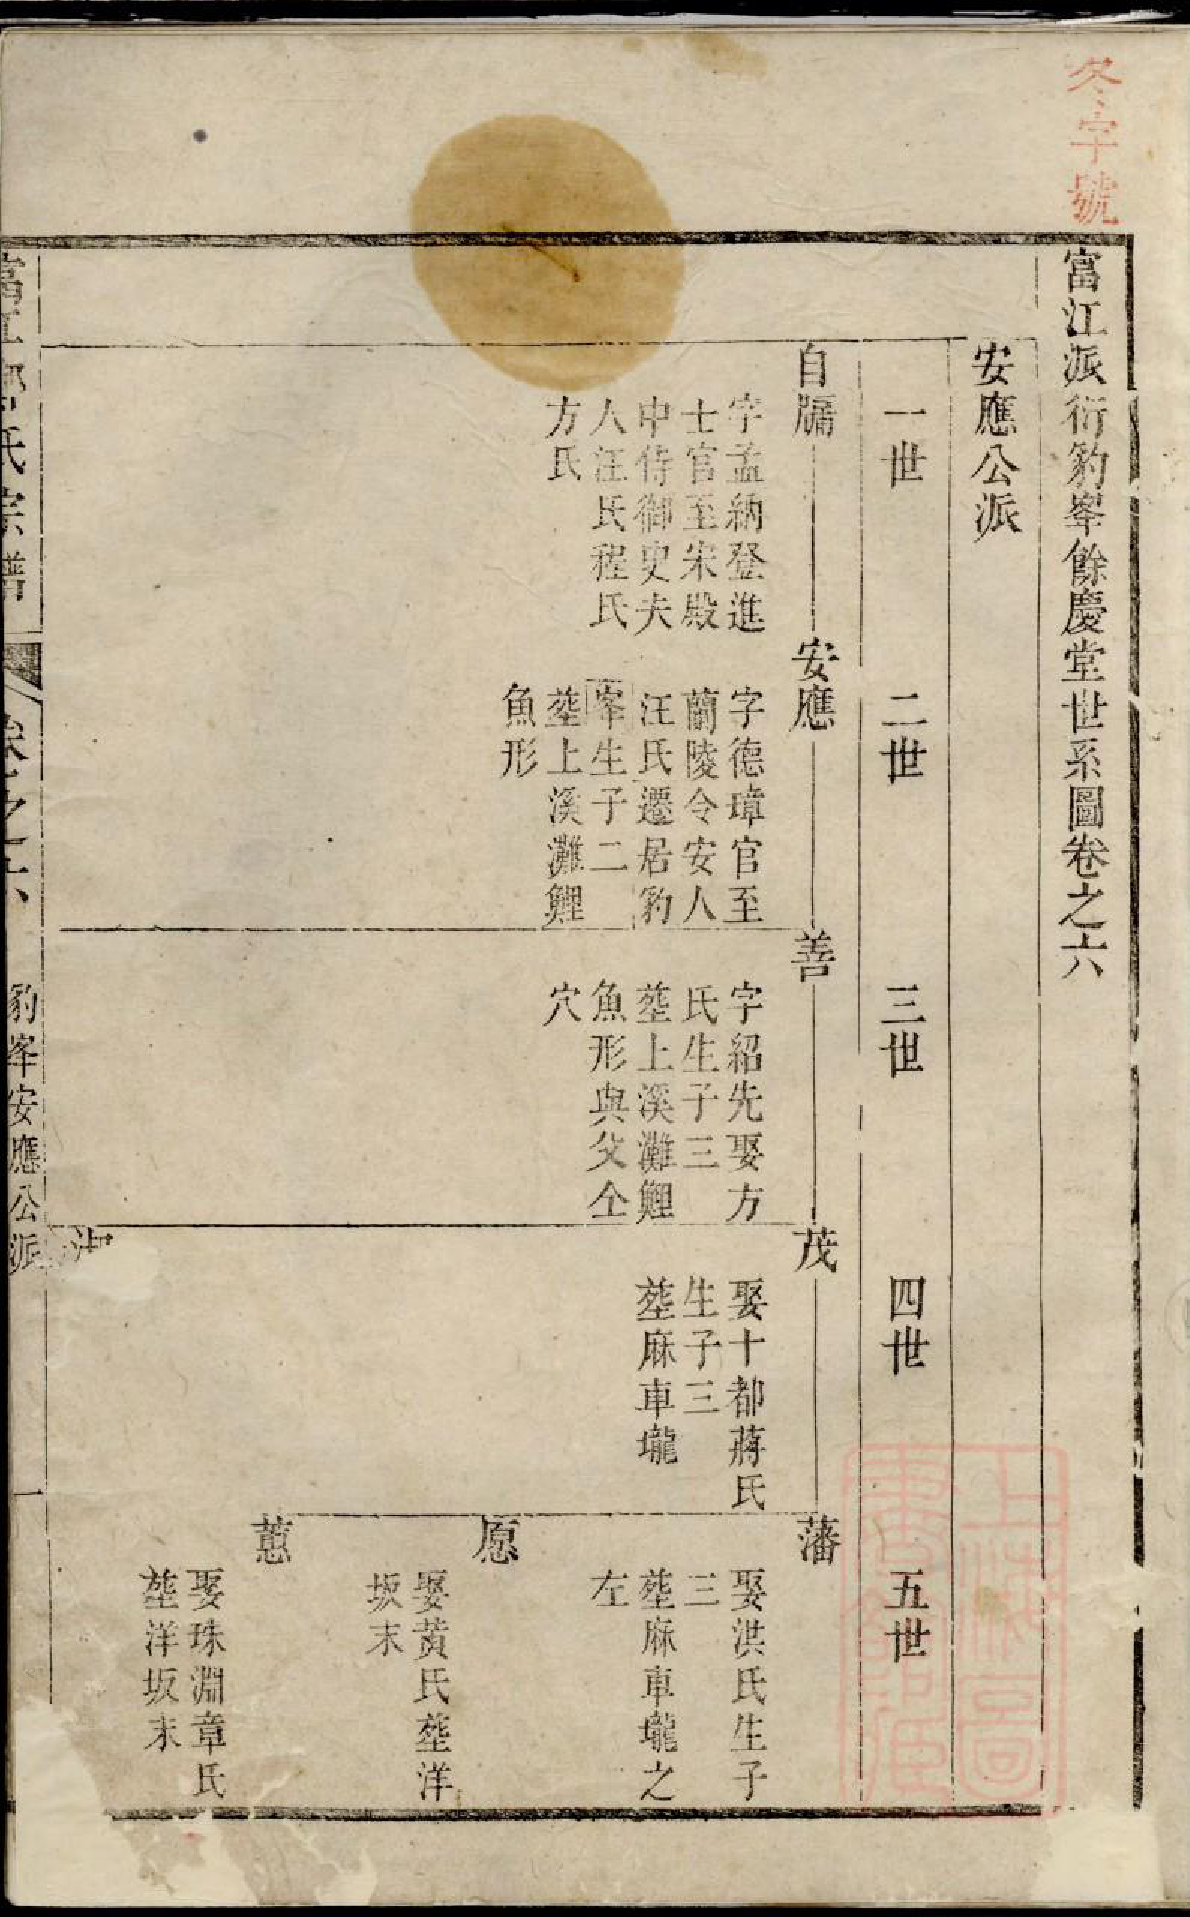 冬字號
富江派衍豹峯餘慶堂世系圖卷之六
安應公派
一世
二世
三世
四世
五世
自牖
字孟納登進
士官至宋殿
中侍御史夫
人汪氏程氏
方氏
安應
字德璋官至
蘭陵令安人
汪氏遷居豹
峯生子二
塟上溪灘鯉
魚形
善
字紹先娶方
氏生子三
塟上溪灘鯉
魚形與父仝
穴
茂
娶十都蔣氏
生子三
塟麻車壠
藩
娶洪氏生子
三
塟麻車壠之
左
愿
娶黃氏塟洋
坂末
蒠
娶珠淵章氏
塟洋坂末
富江 氏宗譜
卷之六
豹峯安應公派
一
上海圖書館藏